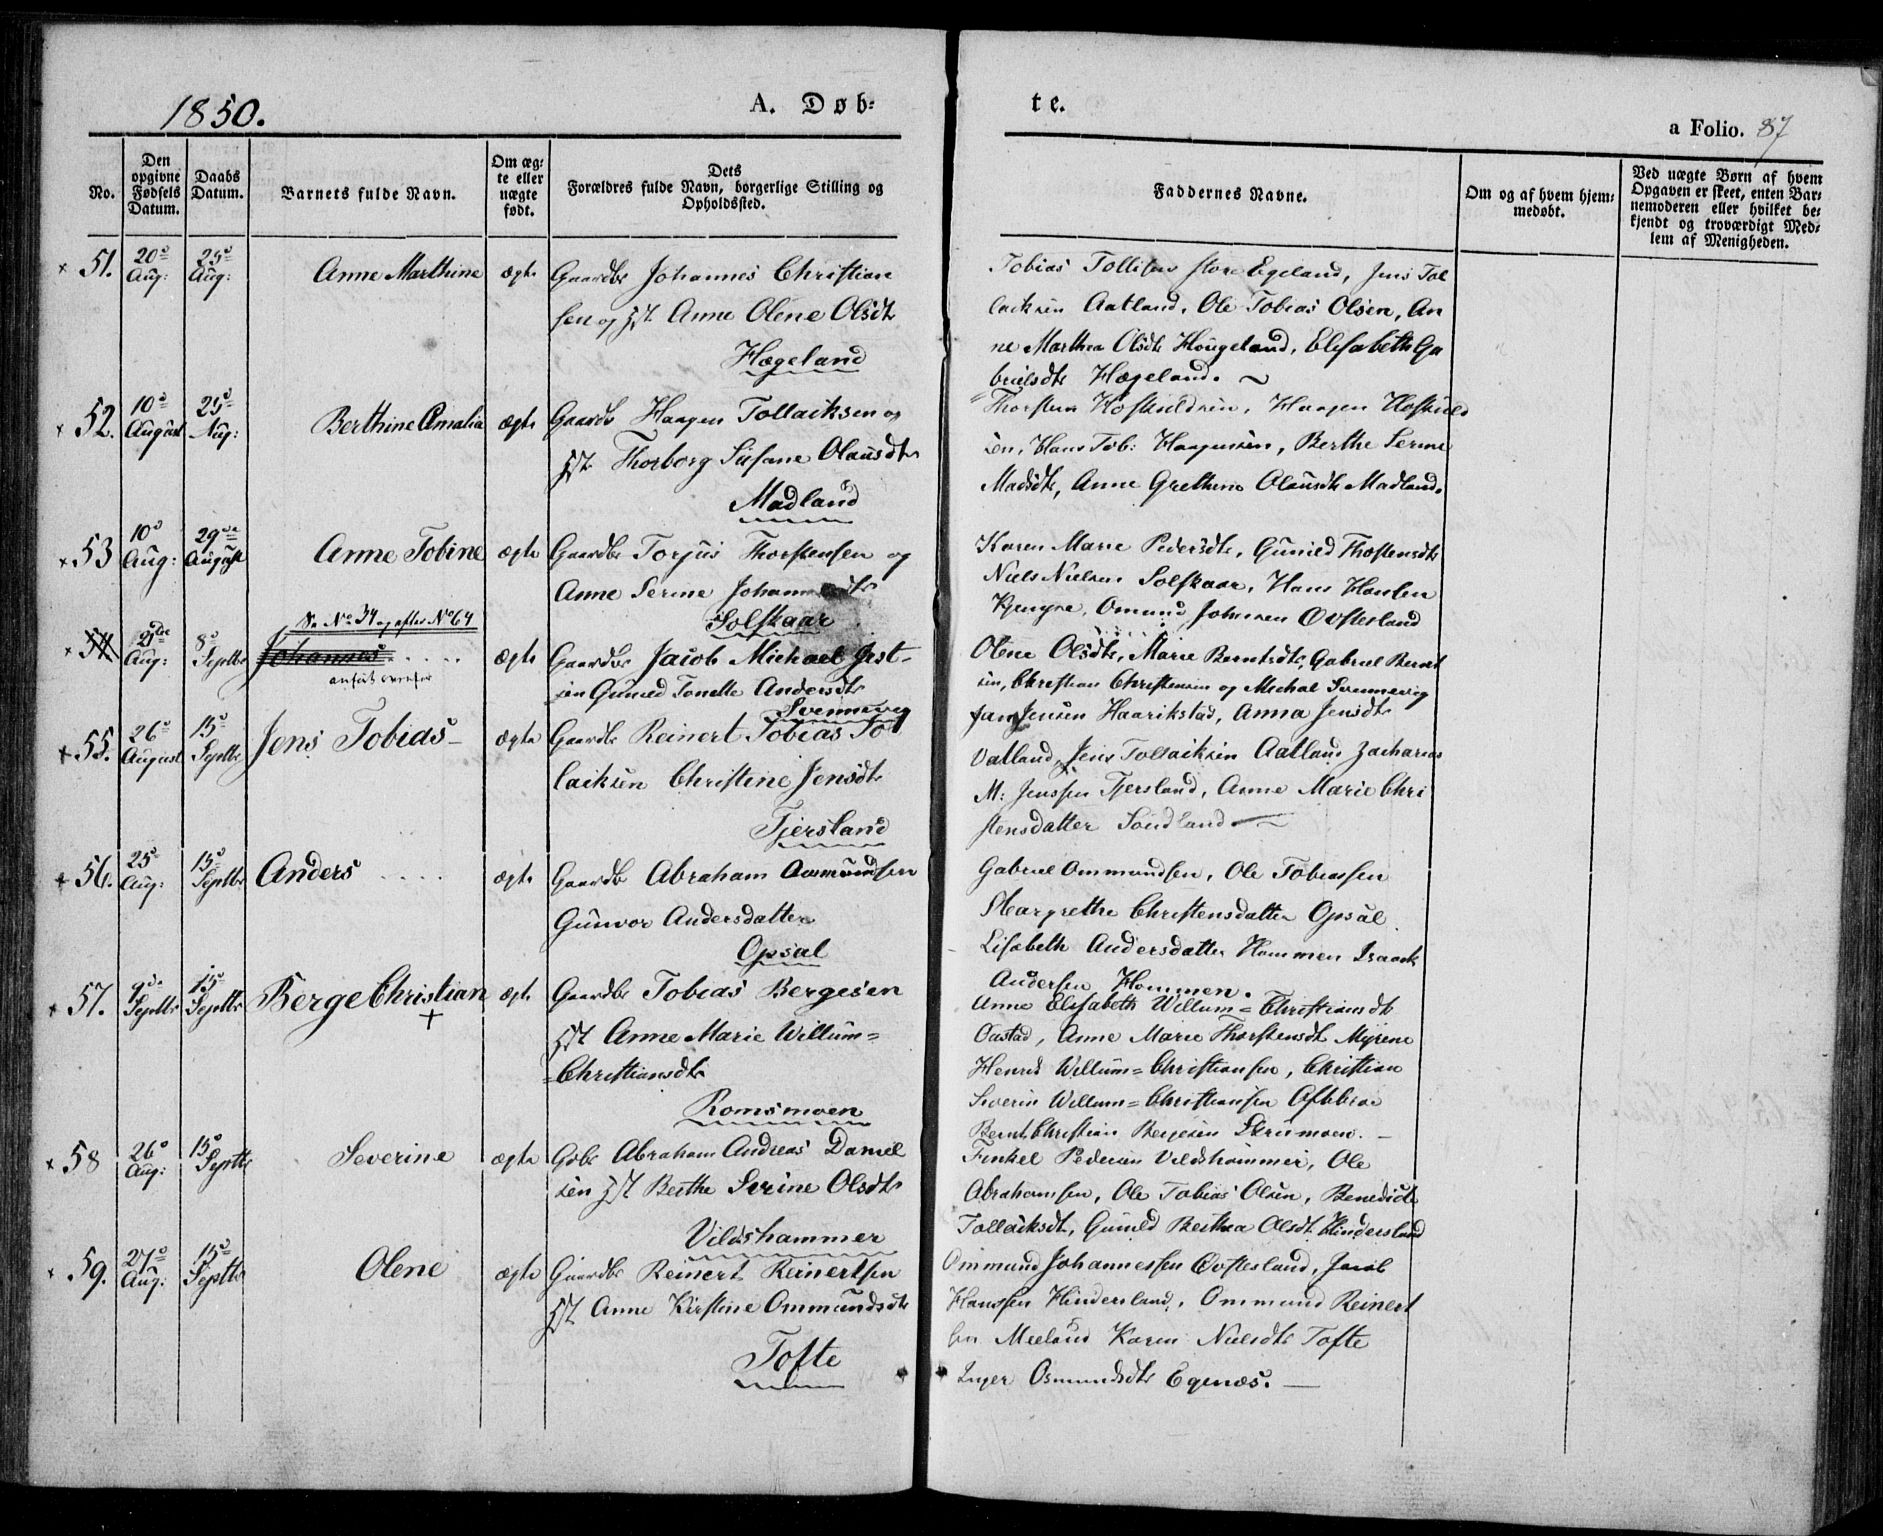 1850.
A. Døb-
te.
a Folio. 87
No.
Den opgivne Fødsels Datum.
Daabs Datum.
Barnets fulde Navn.
Om æg-te eller nægte født.
Dets Forældres fulde Navn, borgerlige Stilling og Opholdssted.
Faddernes Navne.
Om og af hvem hjem-medøbt.
Ved nægte Børn af hvem Opgaven er skeet, enten Bar-nemoderen eller hvilket be-kjendt og troværdigt Med-lem af Menigheden.
51. 20de Aug: 25de Aug: Anne Marthine ægte
Gaardbr Johannes Christian
sen og Hst Anne Olene Olsdtr
Hægeland
Tobias Tollisen store Egeland, Jens Tol
laiksen Aatland, Ole Tobias Olsen, An
ne Marthea Olsdtr Hougeland, Elisabeth Ga
brielsdtr Hægeland.
52. 10de August 25de Aug: Berthine Amalia ægte
Gaardbr Haagen Tollaiksen og
Hst Thorborg Susane Olausdtr
Madland
Thorsten Hoskuldsen, Haagen Hoskuld
sen, Hans Tob: Haagensen, Berthe Serine
Madsdtr, Anne Grethine Olausdtr Madland.
53 10de Aug: 29de August Anne Tobine ægte
Gaardbr Torjus Thorstensen og
Anne Serine Johann
Solskaar
Karen Marie Pedersdtr, Gunild Thostensdtr
Niels Nielsen Solskaar, Hans Hansen
Omund Johnsen Øvstesland
Se No 34 og efter No 64
54 21de Aug: 8de Septbr Johannes ægte
anført ovenfor
Gaardbr Jacob Michael Jest-
sen Gunild Tonette Andersdtr
Svennevig
Olene Olsdtr, Marie Berntsdtr, Gabriel Bernt
sen, Christian Christensen og Michal Svennevig
55. 26de August 15de Septbr Jens Tobias ægte
Gaardbr Reinert Tobias Tol
laiksen Christine Jensdtr
Tjersland
Jan Jensen Haarikstad, Anna Jensdtr
Vatland, Jens Tollaiksen Aatland Zacharias
M: Jenssen Tjersland, Anne Marie Chri
stensdatter Sondland
56. 25de Aug: 15de Septbr Anders ægte
Gaardbr Abraham Aamundsen
Gunvor Andersdatter
Opsal
Gabriel Ommundsen, Ole Tobiassen
Margrethe Christensdatter Opsal.
Lisabeth Andersdatter Hommen Isaack
Andersen Hommen.
57. 9de Septbr 15de Septbr Berge Christian ægte
Gaardbr Tobias Bergesen
Hst Anne Marie Willum=
=Christiansdtr
Romsmoen
Anne Elisabeth Willum=Christiansdtr
Oastad, Anne Marie Thorstensdtr Myrene
Henrik Willum=Christiansen, Christian
Severin Willum=Christiansen
Bernt Christian Bergesen
58 26de Aug: 15de Septbr Severine ægte
Gdbr Abraham Andreas Daniel
sen Hst Berthe Serine Olsdtr
Vildshammer
Tenkel Pedersen Vildshammer, Ole
Abrahamsen, Ole Tobias Olsen, Benedicte
Tollaiksdtr, Gunild Berthea Olsdtr Hindersland
59. 27de Aug: 15de Septbr Olene ægte
Gaardbr Reinert Reinertsen
Hst Anne Kirstine Ommundsdtr
Tofte
Ommund Johannessen Øvstesland, Jacob
Hanssen Hindersland, Ommund Reinert
sen Meeland Karen Nielsdtr Tofte
Inger Osmundsdtr Egenæs.